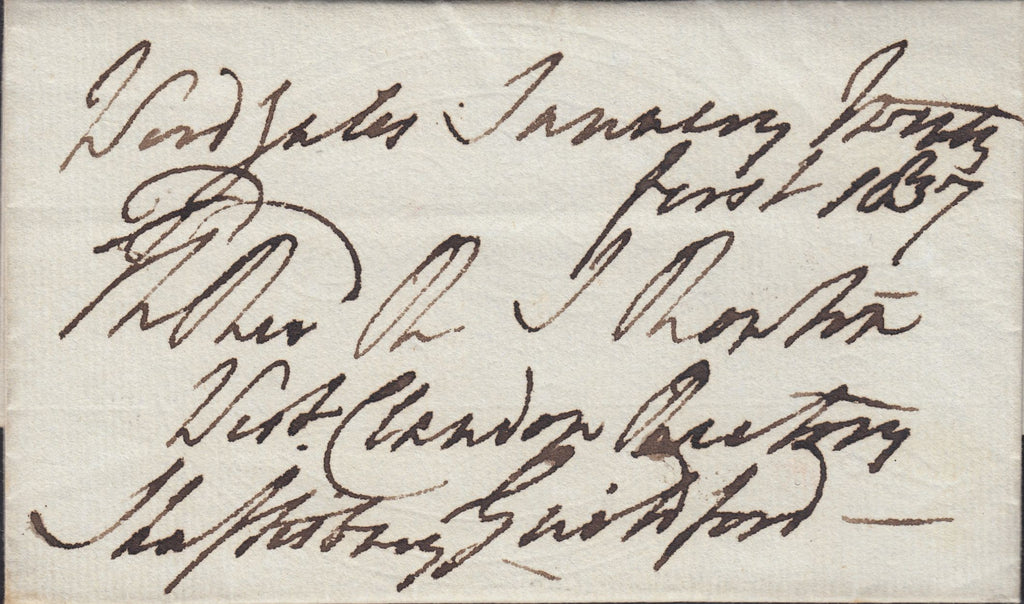 Woodgates January Twenty
first 1837
The Revd R
West Clandon Rectory
Shaftesbury Guildford